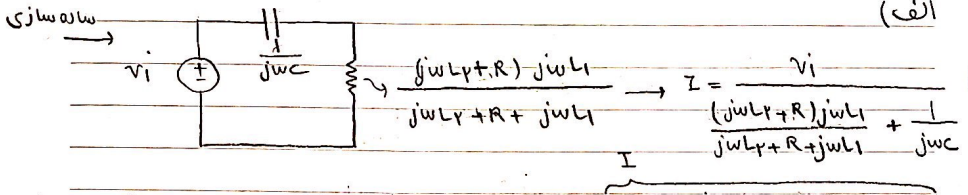 الف)
ساده سازی →
vi
1/jωC
(jωL۲+R) jωL1 / jωL۲+R+jωL1 → I = vi / ((jωL۲+R)jωL1 / jωL۲+R+jωL1 + 1/jωC)
I